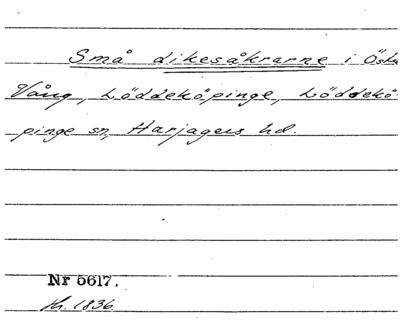 Små dikesåkrarne i Östra
Vång, Löddeköpinge, Löddekö-
pinge sn, Harjagers hd.
Nr 5617.
1836